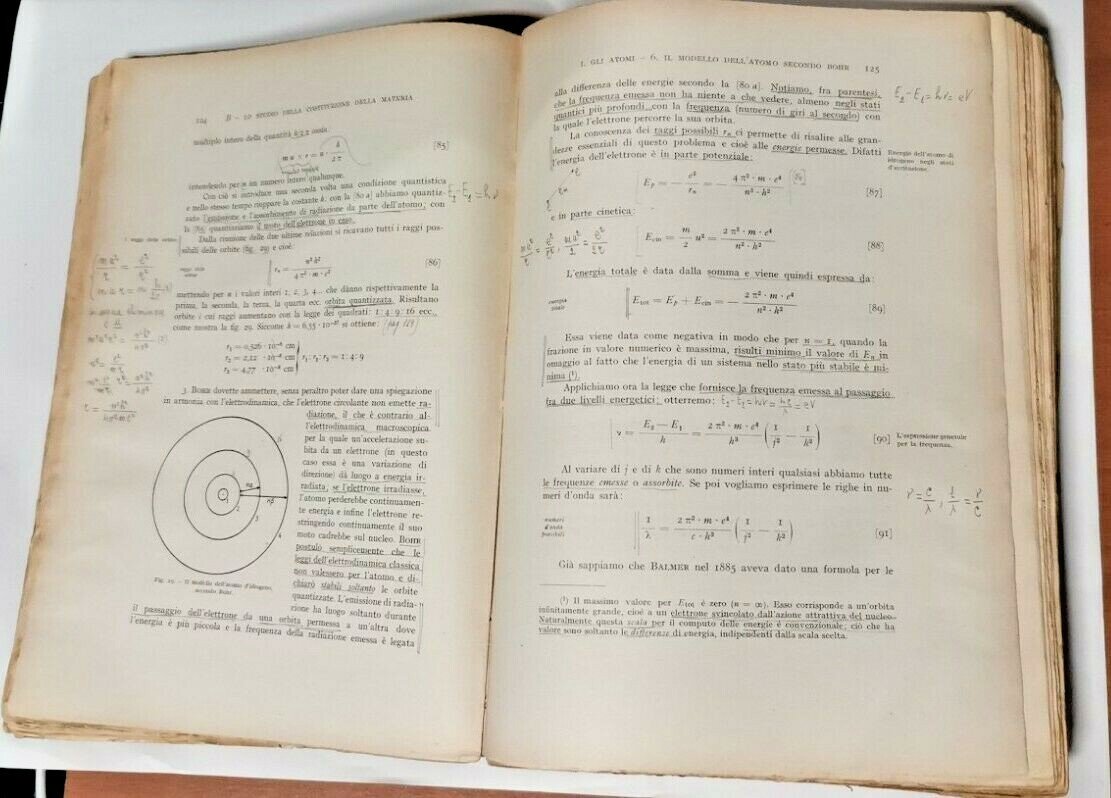 124 B - LO STUDIO DELLA COSTITUZIONE DELLA MATERIA
multiplo intero della quantità h/2 π ossia:
m u × r = n · h / 2 π [85]
intendendo per n un numero intero qualunque.
Con ciò si introduce una seconda volta una condizione quantistica
e nello stesso tempo riappare la costante h: con la [80 a] abbiamo quantiz-
zato l'emissione e l'assorbimento di radiazione da parte dell'atomo; con
la [85] quantizziamo il moto dell'elettrone in esso.
E2 - E1 = h ν
Dalla riunione delle due ultime relazioni si ricavano tutti i raggi pos-
sibili delle orbite (fig. 29) e cioè:
raggi delle
orbite
r_n = n² h² / 4 π² · m · e² [86]
mettendo per n i valori interi 1, 2, 3, 4... che dànno rispettivamente la
prima, la seconda, la terza, la quarta ecc. orbita quantizzata. Risultano
orbite i cui raggi aumentano con la legge dei quadrati: 1 : 4 : 9 : 16 ecc.,
come mostra la fig. 29. Siccome h = 6,55 · 10⁻²⁷ si ottiene:
r₁ = 0,526 · 10⁻⁸ cm
r₂ = 2,12 · 10⁻⁸ cm r₁ : r₂ : r₃ = 1 : 4 : 9
r₃ = 4,77 · 10⁻⁸ cm
3. BOHR dovette ammettere, senza peraltro poter dare una spiegazione
in armonia con l'elettrodinamica, che l'elettrone circolante non emette ra-
diazione, il che è contrario al-
l'elettrodinamica macroscopica
per la quale un'accelerazione su-
bita da un elettrone (in questo
caso essa è una variazione di
direzione) dà luogo a energia ir-
radiata; se l'elettrone irradiasse,
l'atomo perderebbe continuamen-
te energia e infine l'elettrone re-
stringendo continuamente il suo
moto cadrebbe sul nucleo. BOHR
postulò semplicemente che le
leggi dell'elettrodinamica classica
non valessero per l'atomo e di-
chiarò stabili soltanto le orbite
quantizzate. L'emissione di radia-
zione ha luogo soltanto durante
il passaggio dell'elettrone da una orbita permessa a un'altra dove
l'energia è più piccola e la frequenza della radiazione emessa è legata
Fig. 29. - Il modello dell'atomo d'idrogeno,
secondo Bohr.
I. GLI ATOMI - 6. IL MODELLO DELL'ATOMO SECONDO BOHR 125
alla differenza delle energie secondo la [80 a]. Notiamo, fra parentesi,
che la frequenza emessa non ha niente a che vedere, almeno negli stati
quantici più profondi, con la frequenza (numero di giri al secondo) con
la quale l'elettrone percorre la sua orbita.
E2 - E1 = hν = eV
La conoscenza dei raggi possibili r_n ci permette di risalire alle gran-
dezze essenziali di questo problema e cioè alle energie permesse. Difatti
l'energia dell'elettrone è in parte potenziale:
Energie dell'atomo di
idrogeno negli stati
d'eccitazione.
E_p = - e² / r_n = - 4 π² · m · e⁴ / n² · h² [87]
e in parte cinetica:
E_cin = m / 2 u² = 2 π² · m · e⁴ / n² · h² [88]
L'energia totale è data dalla somma e viene quindi espressa da:
energia
totale
E_tot = E_p + E_cin = - 2 π² · m · e⁴ / n² · h² [89]
Essa viene data come negativa in modo che per n = 1, quando la
frazione in valore numerico è massima, risulti minimo il valore di E_n in
omaggio al fatto che l'energia di un sistema nello stato più stabile è mi-
nima (¹).
Applichiamo ora la legge che fornisce la frequenza emessa al passaggio
fra due livelli energetici; otterremo: E2 - E1 = hν = hc / λ = eV
ν = E₂ - E₁ / h = 2 π² · m · e⁴ / h³ ( 1 / j² - 1 / k² ) [90]
L'espressione generale
per la frequenza.
Al variare di j e di k che sono numeri interi qualsiasi abbiamo tutte
le frequenze emesse o assorbite. Se poi vogliamo esprimere le righe in nu-
meri d'onda sarà:
ν = c / λ , 1 / λ = ν / c
numeri
d'onda
possibili
1 / λ = 2 π² · m · e⁴ / c · h³ ( 1 / j² - 1 / k² ) [91]
Già sappiamo che BALMER nel 1885 aveva dato una formula per le
(¹) Il massimo valore per E_tot è zero (n = ∞). Esso corrisponde a un'orbita
infinitamente grande, cioè a un elettrone svincolato dall'azione attrattiva del nucleo.
Naturalmente questa scala per il computo delle energie è convenzionale; ciò che ha
valore sono soltanto le differenze di energia, indipendenti dalla scala scelta.